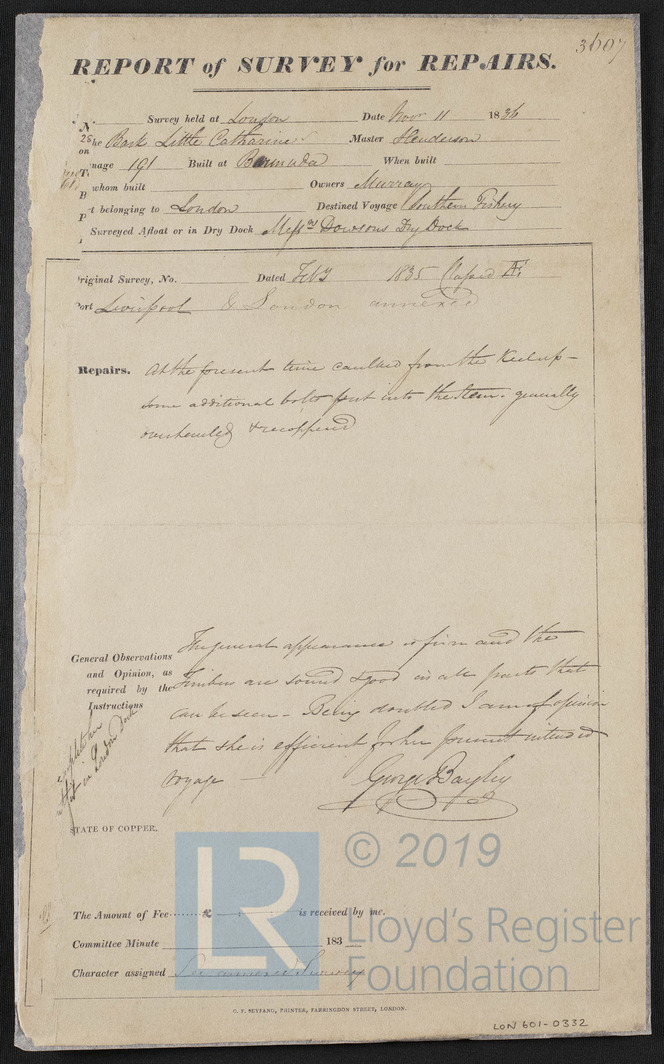 3607
REPORT of SURVEY for REPAIRS.
N Survey held at London Date Novr 11 1836
he Bark Little Catharine Master Henderson
nage 191 Built at Bermuda When built
whom built Owners Murray
t belonging to London Destined Voyage Southern Fishery
Surveyed Afloat or in Dry Dock Messrs Dowsons Dry Dock
riginal Survey, No. Dated Feby 1835 Classed Æ1
ort Liverpool & London annexed
Repairs. At the present time caulked from the Keel up -
some additional bolts put into the Stem. generally
overhauled & recoppered
General Observations and Opinion, as required by the Instructions
The general appearance is firm and the
Timbers are sound & good in all parts that
can be seen - Being doubled I am of opinion
that she is efficient for her present intended
voyage
George Bayley
in London Dock
STATE OF COPPER.
The Amount of Fee £ is received by me.
Committee Minute 183
Character assigned See annexed Survey
© 2019
LR
Lloyd's Register
Foundation
C. F. SEYFANG, PRINTER, FARRINGDON STREET, LONDON.
LON 601-0332